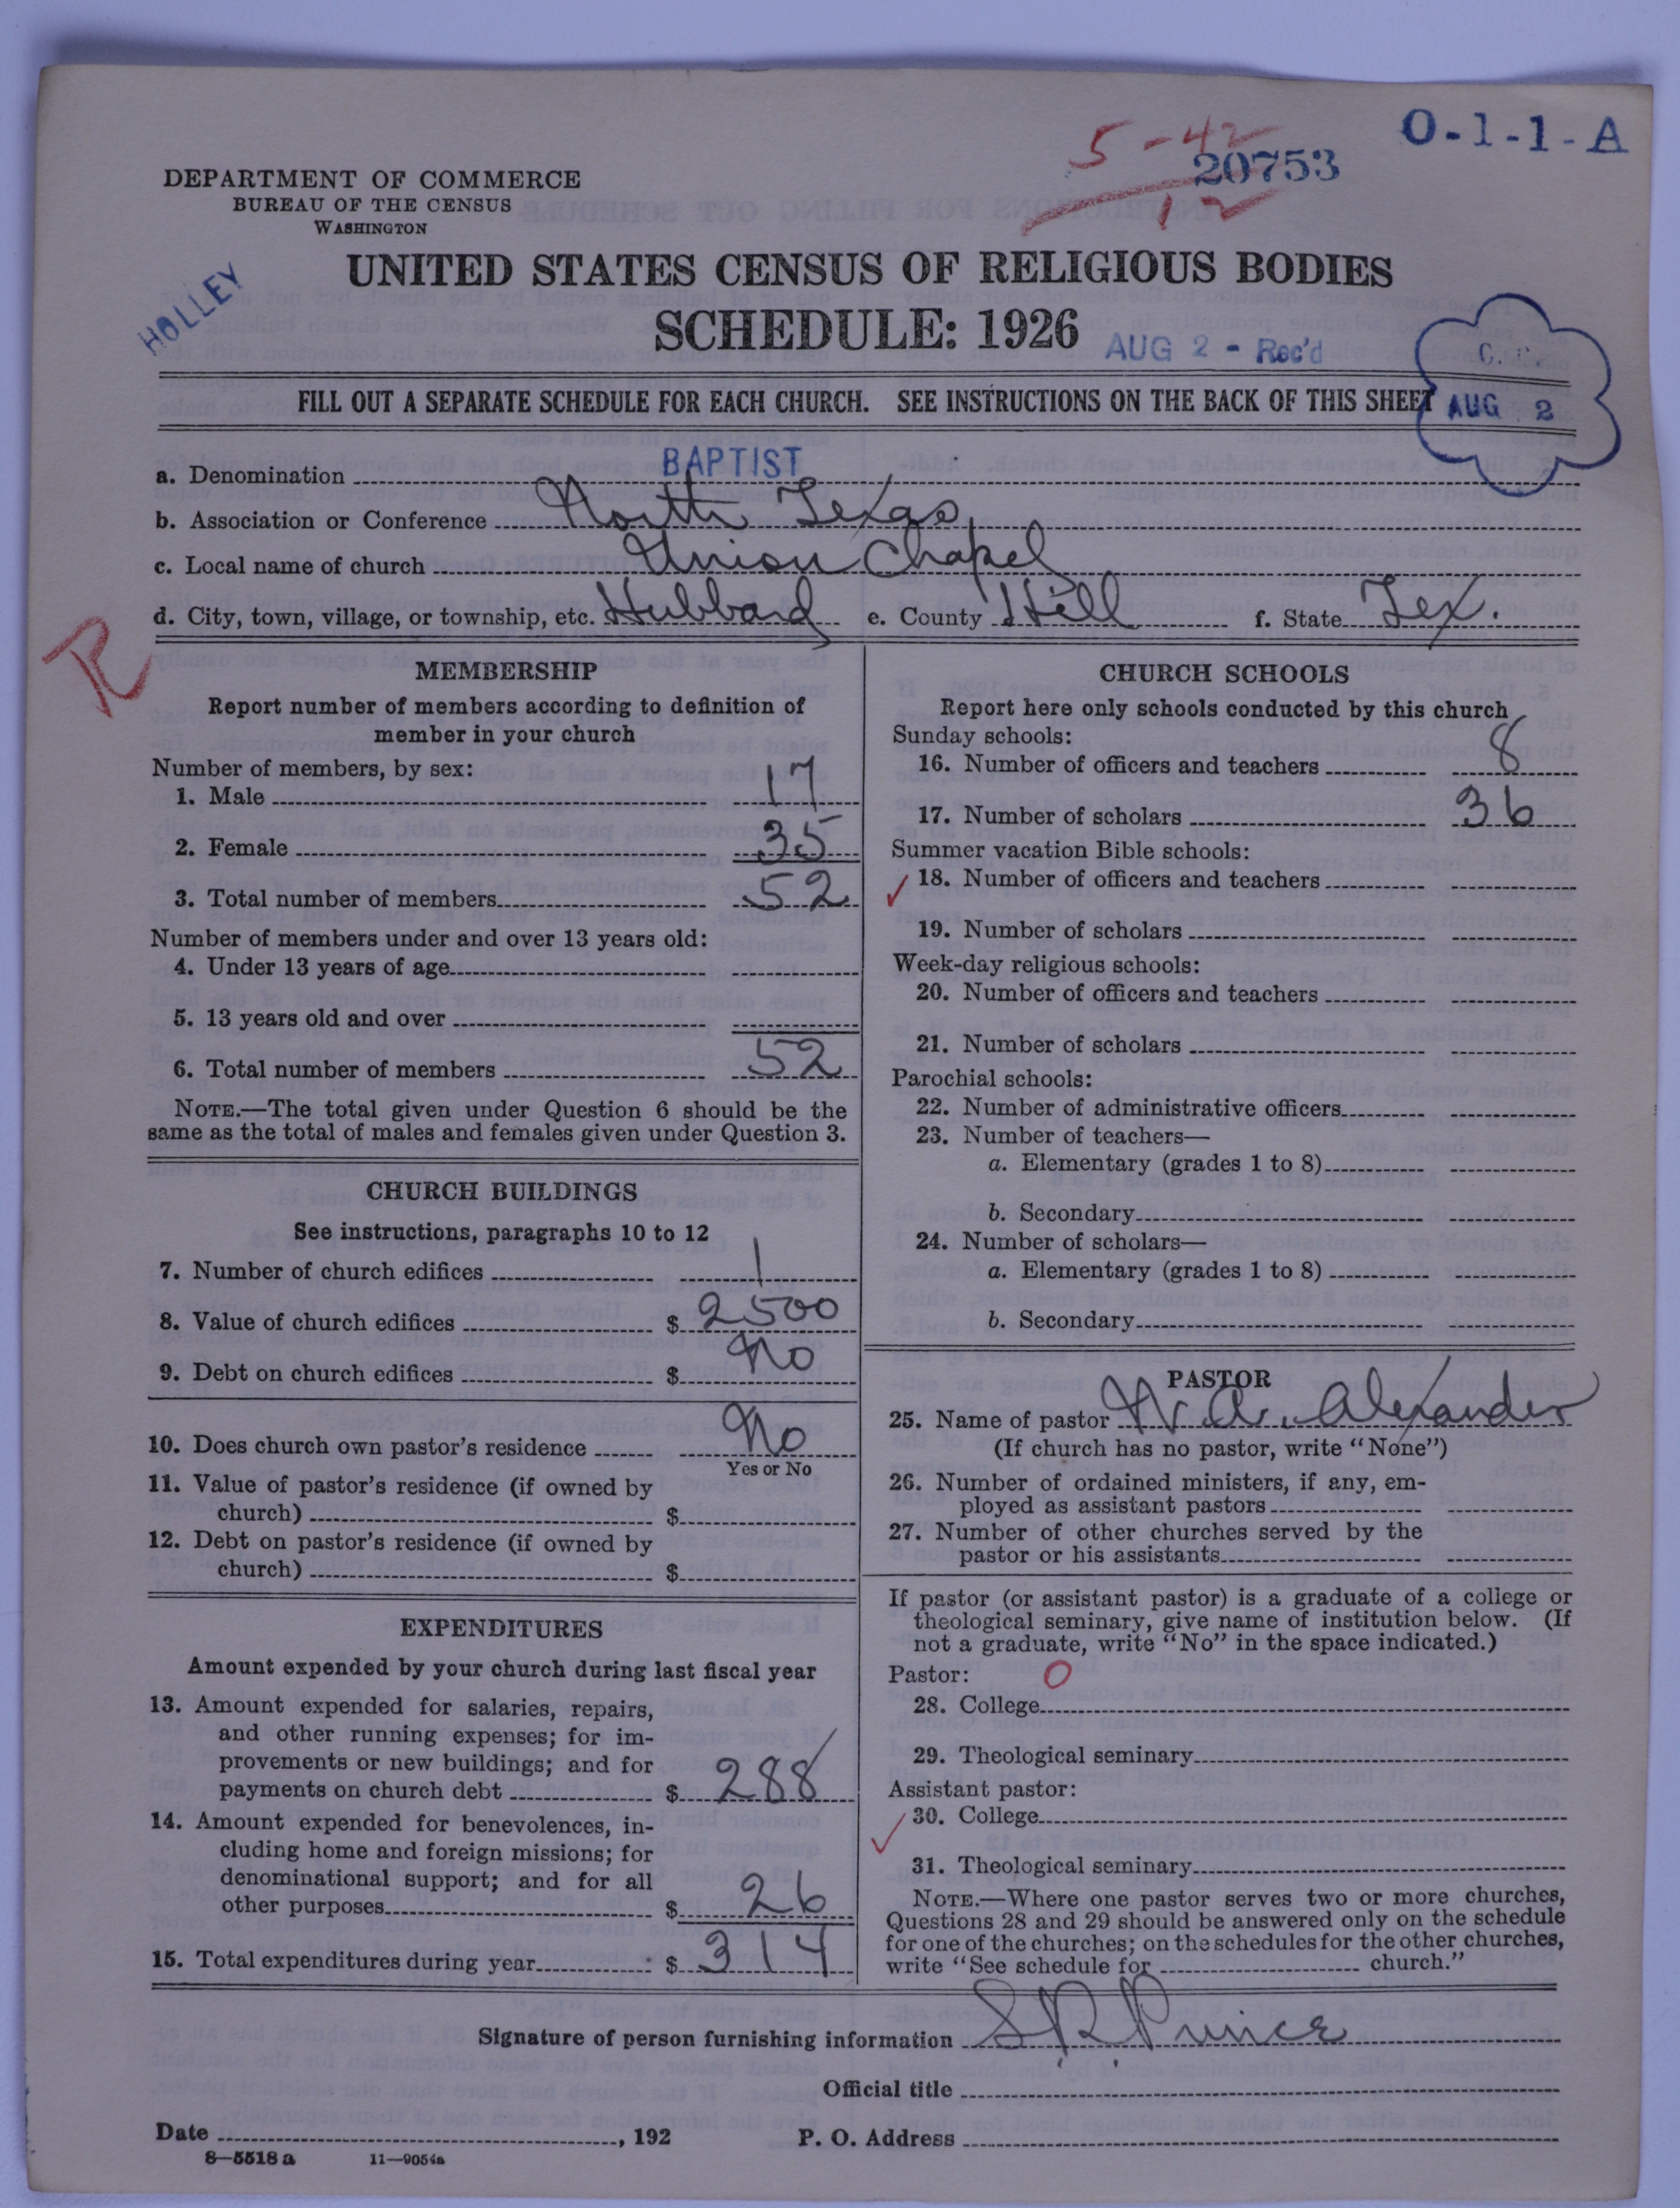 O-1-1-A
5-42
20753
12
DEPARTMENT OF COMMERCE
BUREAU OF THE CENSUS
WASHINGTON
HOLLEY
UNITED STATES CENSUS OF RELIGIOUS BODIES
SCHEDULE: 1926
AUG 2 - Rec'd
FILL OUT A SEPARATE SCHEDULE FOR EACH CHURCH. SEE INSTRUCTIONS ON THE BACK OF THIS SHEET
AUG 2
a. Denomination BAPTIST
b. Association or Conference North Texas
c. Local name of church Union Chapel
d. City, town, village, or township, etc. Hubbard e. County Hill f. State Tex.
R
MEMBERSHIP
Report number of members according to definition of
member in your church
Number of members, by sex:
1. Male 17
2. Female 35
3. Total number of members 52
Number of members under and over 13 years old:
4. Under 13 years of age
5. 13 years old and over
6. Total number of members 52
NOTE.—The total given under Question 6 should be the
same as the total of males and females given under Question 3.
CHURCH BUILDINGS
See instructions, paragraphs 10 to 12
7. Number of church edifices 1
8. Value of church edifices $ 2500
9. Debt on church edifices $ No
10. Does church own pastor's residence No
Yes or No
11. Value of pastor's residence (if owned by
church) $
12. Debt on pastor's residence (if owned by
church) $
EXPENDITURES
Amount expended by your church during last fiscal year
13. Amount expended for salaries, repairs,
and other running expenses; for im-
provements or new buildings; and for
payments on church debt $ 288
14. Amount expended for benevolences, in-
cluding home and foreign missions; for
denominational support; and for all
other purposes $ 26
15. Total expenditures during year $ 314
CHURCH SCHOOLS
Report here only schools conducted by this church
Sunday schools:
16. Number of officers and teachers 8
17. Number of scholars 36
Summer vacation Bible schools:
18. Number of officers and teachers
19. Number of scholars
Week-day religious schools:
20. Number of officers and teachers
21. Number of scholars
Parochial schools:
22. Number of administrative officers
23. Number of teachers—
a. Elementary (grades 1 to 8)
b. Secondary
24. Number of scholars—
a. Elementary (grades 1 to 8)
b. Secondary
PASTOR
25. Name of pastor W. A. Alexander
(If church has no pastor, write "None")
26. Number of ordained ministers, if any, em-
ployed as assistant pastors
27. Number of other churches served by the
pastor or his assistants
If pastor (or assistant pastor) is a graduate of a college or
theological seminary, give name of institution below. (If
not a graduate, write "No" in the space indicated.)
Pastor: O
28. College
29. Theological seminary
Assistant pastor:
30. College
31. Theological seminary
NOTE.—Where one pastor serves two or more churches,
Questions 28 and 29 should be answered only on the schedule
for one of the churches; on the schedules for the other churches,
write "See schedule for church."
Signature of person furnishing information S. R. Prince
Official title
Date , 192 P. O. Address
8—5518 a 11—9054a